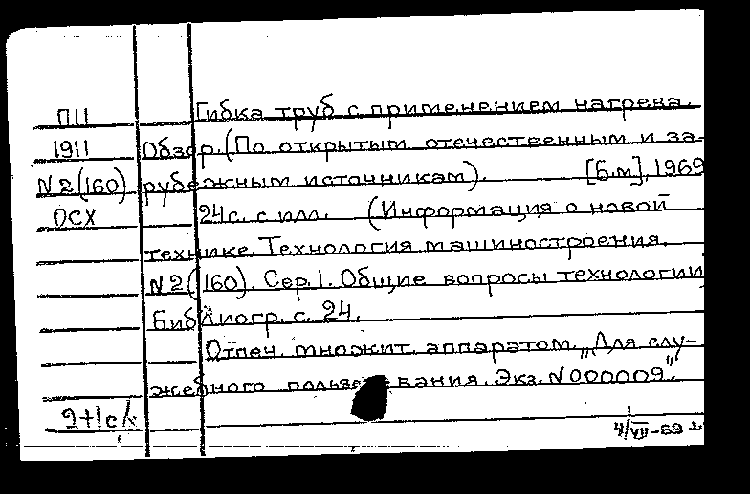 П11 Гибка труб с применением нагрева.
1911 Обзор. (По открытым отечественным и за-
N2(160) рубежным источникам). [Б.м], 1969
ОСХ 24с. с илл. (Информация о новой
технике. Технология машиностроения.
N2(160). Сер. 1. Общие вопросы технологии)
Библиогр. с. 24.
Отпеч. множит. аппаратом. „Для слу-
жебного пользования. Экз. N000009".
2+1с/к
4/VII-69